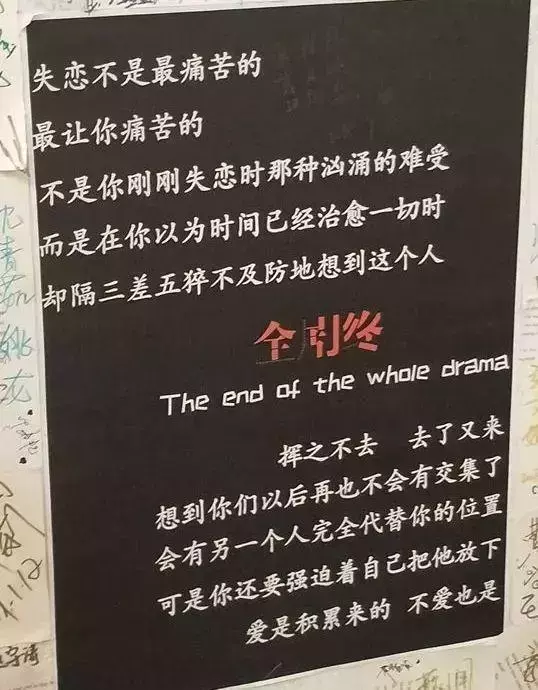 失恋不是最痛苦的
最让你痛苦的
不是你刚刚失恋时那种汹涌的难受
而是在你以为时间已经治愈一切时
却隔三差五猝不及防地想到这个人
全剧终
The end of the whole drama
挥之不去 去了又来
想到你们以后再也不会有交集了
会有另一个人完全代替你的位置
可是你还要强迫着自己把他放下
爱是积累来的 不爱也是